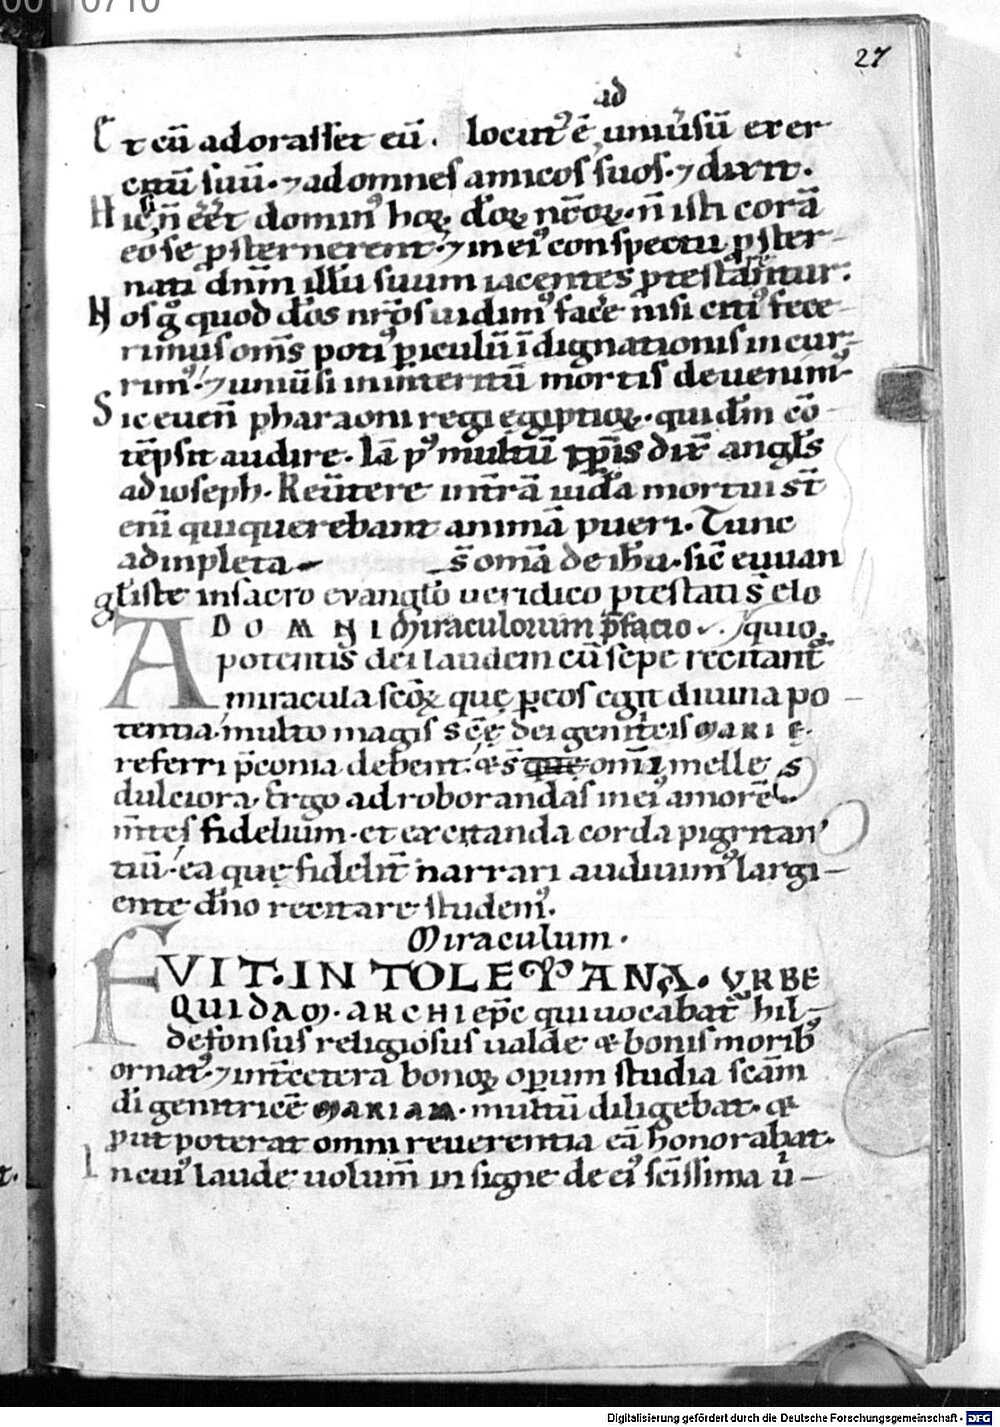 00110710
27
ad
Et cū adorasset eū. locut᷒ ē, uniūsū exer
citū suū. ⁊ ad omnes amicos suos. ⁊ dixit.
Hic n̄ eēt domin᷒ hoꝝ dōꝝ nr̄oꝝ. n̄ isti corā
eo se ꝓsternerent. ⁊ in ei᷒ conspectu ꝓster-
nati dn̄m illū suum iacentes ꝓtestarentur.
Nos g̊ quod dōs nr̄os uidim᷒ facē nisi citi᷒ fece-
rimus om̄s poti᷒ ꝑiculū īdignationis incur-
rim᷒. ⁊ uniūsi in interitū mortis deuenim᷒
Sic euen̄ pharaoni regi egiptioꝝ. qui dn̄m cō-
tēpsit audire. Iā p᷒ multū tp̄is dix̄ angl̄s
ad ioseph. Reūtere in trā iuda mortui st̄
enī qui querebant animā pueri. Tunc
adinpleta s̄ omā de ih̄u. sic̄ euuan
gl̄iste in sacro evangl̄o ueridico ꝓtestati s̄ elo
A DOMNI Miraculorum p̄facio quio.
potentis dei laudem cū sepe recitant᷒
miracula sc̄oꝝ que ꝑ eos egit diuina po-
tentia. multo magis sc̄ę dei genitricis MARIE.
referri p̄conia debent. q̄ s̄ omī melle
dulciora. Ergo ad roborandas in ei᷒ amorē
m̄tes fidelium. et excitanda corda pigritan
tiū. ea que fidelit᷒ narrari audiuim᷒ largi-
ente dn̄o recitare studem᷒.
Miraculum.
FVIT. IN TOLETANA. VRBE
QUIDAM. ARCHI ep̄c qui uocabat᷒ hil-
defonsus religiosus ualde & bonis morib᷒
ornat᷒. ⁊ int̄ cetera bonoꝝ opum studia sc̄am
dī genitricē MARIAM. multū diligebat. &
put poterat omni reuerentia eā honorabat.
In cui᷒ laude uolum̄ insigne de ei᷒ sc̄issima ū-
Digitalisierung gefördert durch die Deutsche Forschungsgemeinschaft - DFG